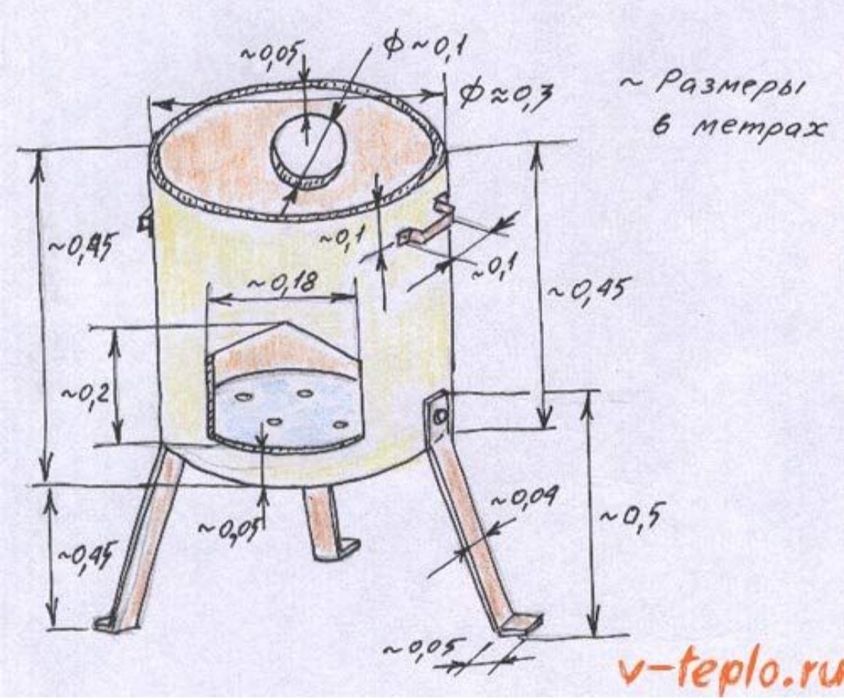 ~0,05
ф~0,1
ф≈0,3
~ Размеры
в метрах
~0,45
~0,1
~0,1
~0,18
~0,45
~0,2
~0,04
~0,05
~0,5
~0,45
~0,05
v-teplo.ru